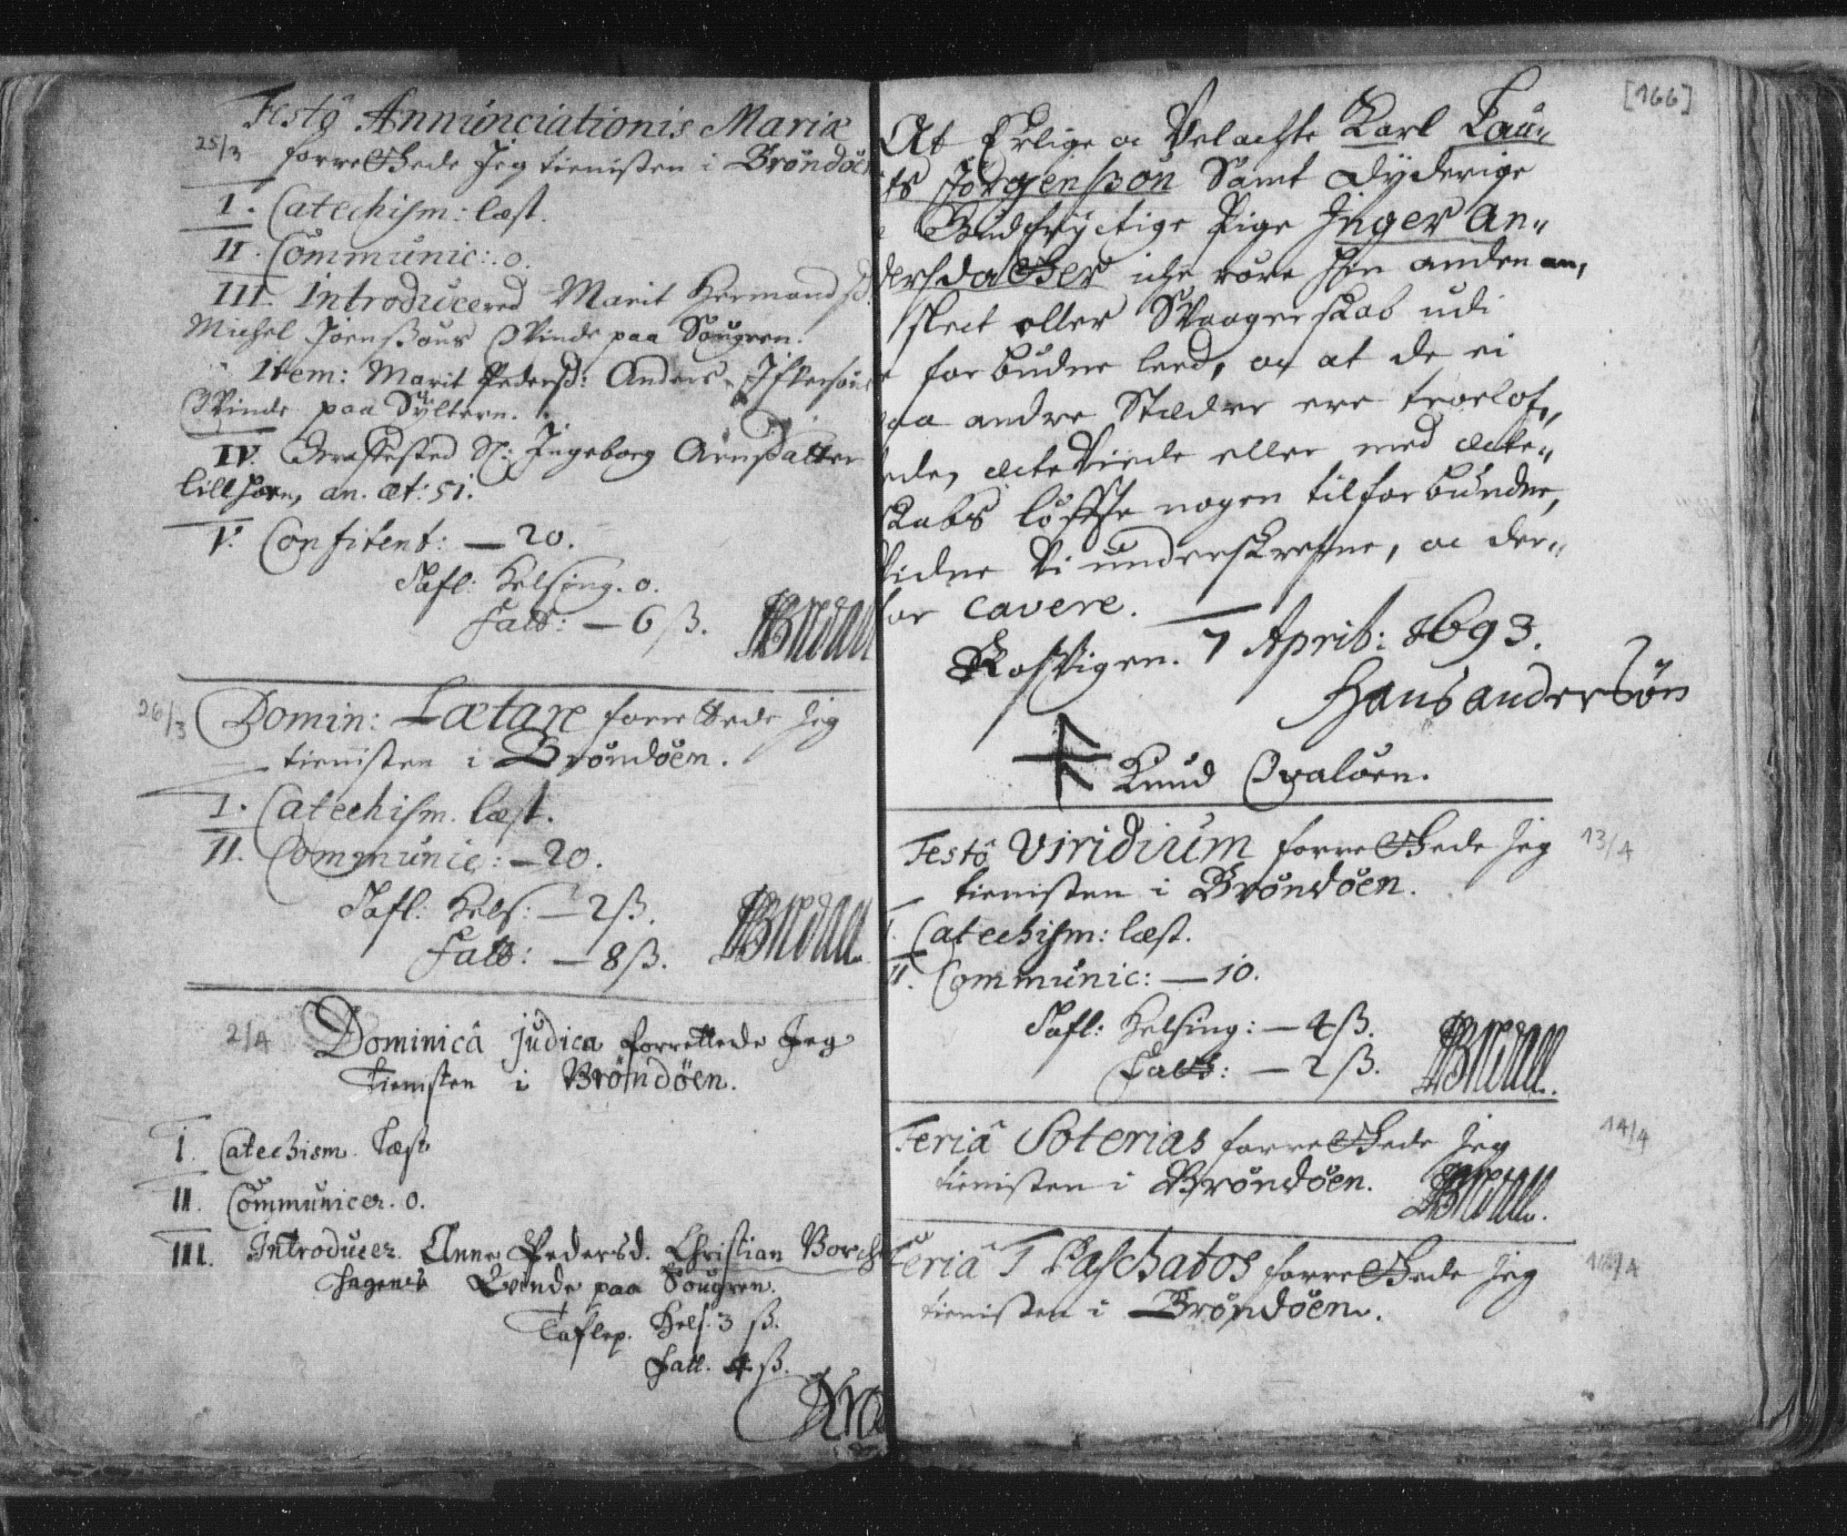 Festô Annunciationis Mariæ
25/3 forrettede Jeg tienisten i Brøndøen
I. Catechism: læst.
II. Communic: 0.
III. Introducered Marit Hermandsd.
Michel Joenssøns Qvinde paa Sougren.
Item: Marit Pedersd: Anders
Qvinde paa Syltern.
IV. Graffested S: Ingeborg Arnsdatter
lill Horn, an. æt: 51.
V. Confitent: — 20.
Tafl: Helsing. 0.
Fatt: — 6 ß.
26/3 Domin: Lætare forrettede Jeg
tienisten i Brøndøen.
I. Catechism. læst.
II. Communic: — 20.
Tafl: Hels: — 2 ß.
Fatt: — 8 ß.
2/4 Dominicâ Judica forrettede Jeg
Tienisten i Brøndöen.
I. Catechism. Læst
II. Communicer. 0.
III. Introducer. Anne Pedersd. Christian Borch
Hagens Qvinde paa Sougren.
Taflep. Hels. 3 ß.
Fatt. 4 ß.
[166]
At Erlige oc Velachte Karl Lau„
its Jörgensson Samt Dyderige
Gudfryctige Pige Inger An„
dersdatter iche røre hin anden an,
slect eller Svaagerskab udi
forbudne leed, oc at de ei
paa andre Stæder ere troelof„
ede, ægteviede eller med ecte„
skabs løffte nogen tilforbundne,
Vidne Vi underskrefne, oc der„
for cavere.
Rosvigen. 7 April: 1693.
Hans andersøn
Knud Qvaløen.
Festô Viridium forrettede Jeg 13/4
tienisten i Brøndøen.
I. Catechism: læst.
II. Communic: — 10.
Tafl: Helsing: — 4 ß.
Fatt: — 2 ß.
Feriâ Soterias forrettede Jeg 14/4
tienisten i Brøndøen.
Feriâ I Paschatos forrettede Jeg
tienisten i Brøndøen.